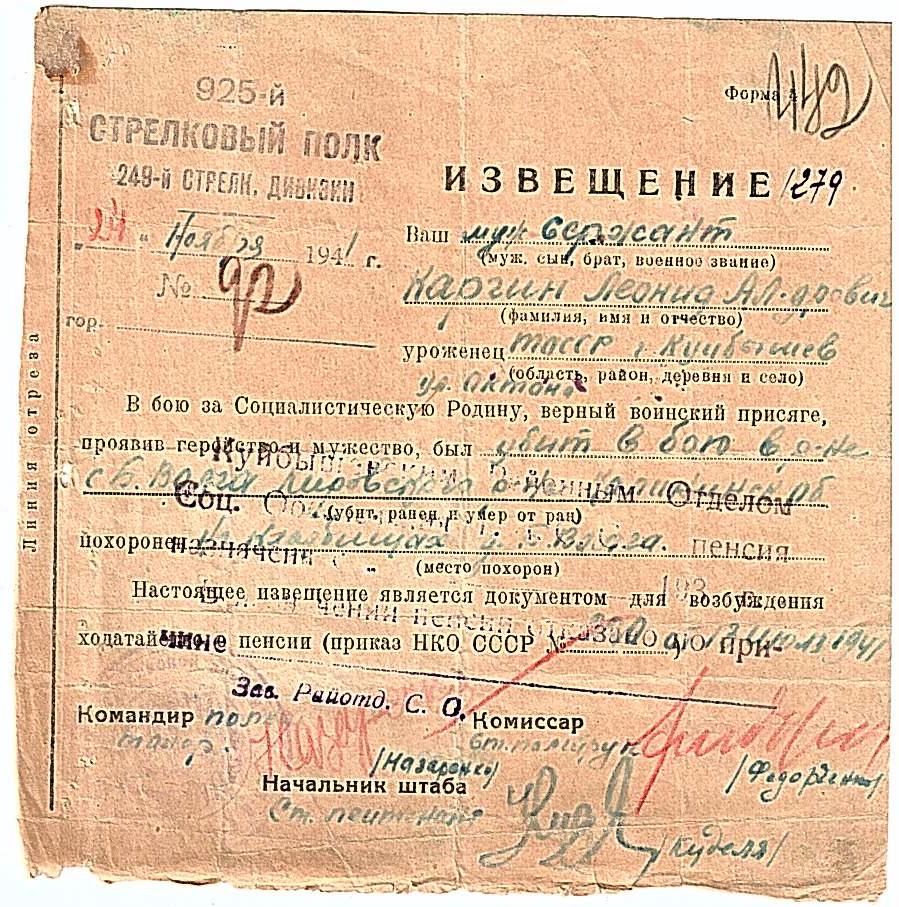 925-й
СТРЕЛКОВЫЙ ПОЛК
249-й СТРЕЛК. ДИВИЗИИ
"24" Ноября 1941 г.
№
гор.
Линия отреза
Форма 4
482
ИЗВЕЩЕНИЕ 1279
Ваш муж сержант
(муж, сын, брат, военное звание)
Каргин Леонид Ал-дрович
(фамилия, имя и отчество)
уроженец ТАССР г. Куйбышев
(область, район, деревня и село)
В бою за Социалистическую Родину, верный воинский присяге,
проявив геройство и мужество, был убит в бою в р-не
с Б. обл
(убит, ранен и умер от ран)
похоронен Б
(место похорон)
Настоящее извещение является документом для возбуждения
ходатайства о пенсии (приказ НКО СССР № )
Куйбышевским Районным Отделом
Соц.
пенсия
193
пенсии
при-
Зав. Райотд. С. О.
Командир полка
майор.
/Назаренко/
Комиссар
ст. политрук
/Федорченко/
Начальник штаба
Ст. лейтенант
/Куделя/